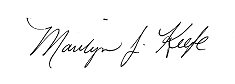 Marilyn J. Keefe